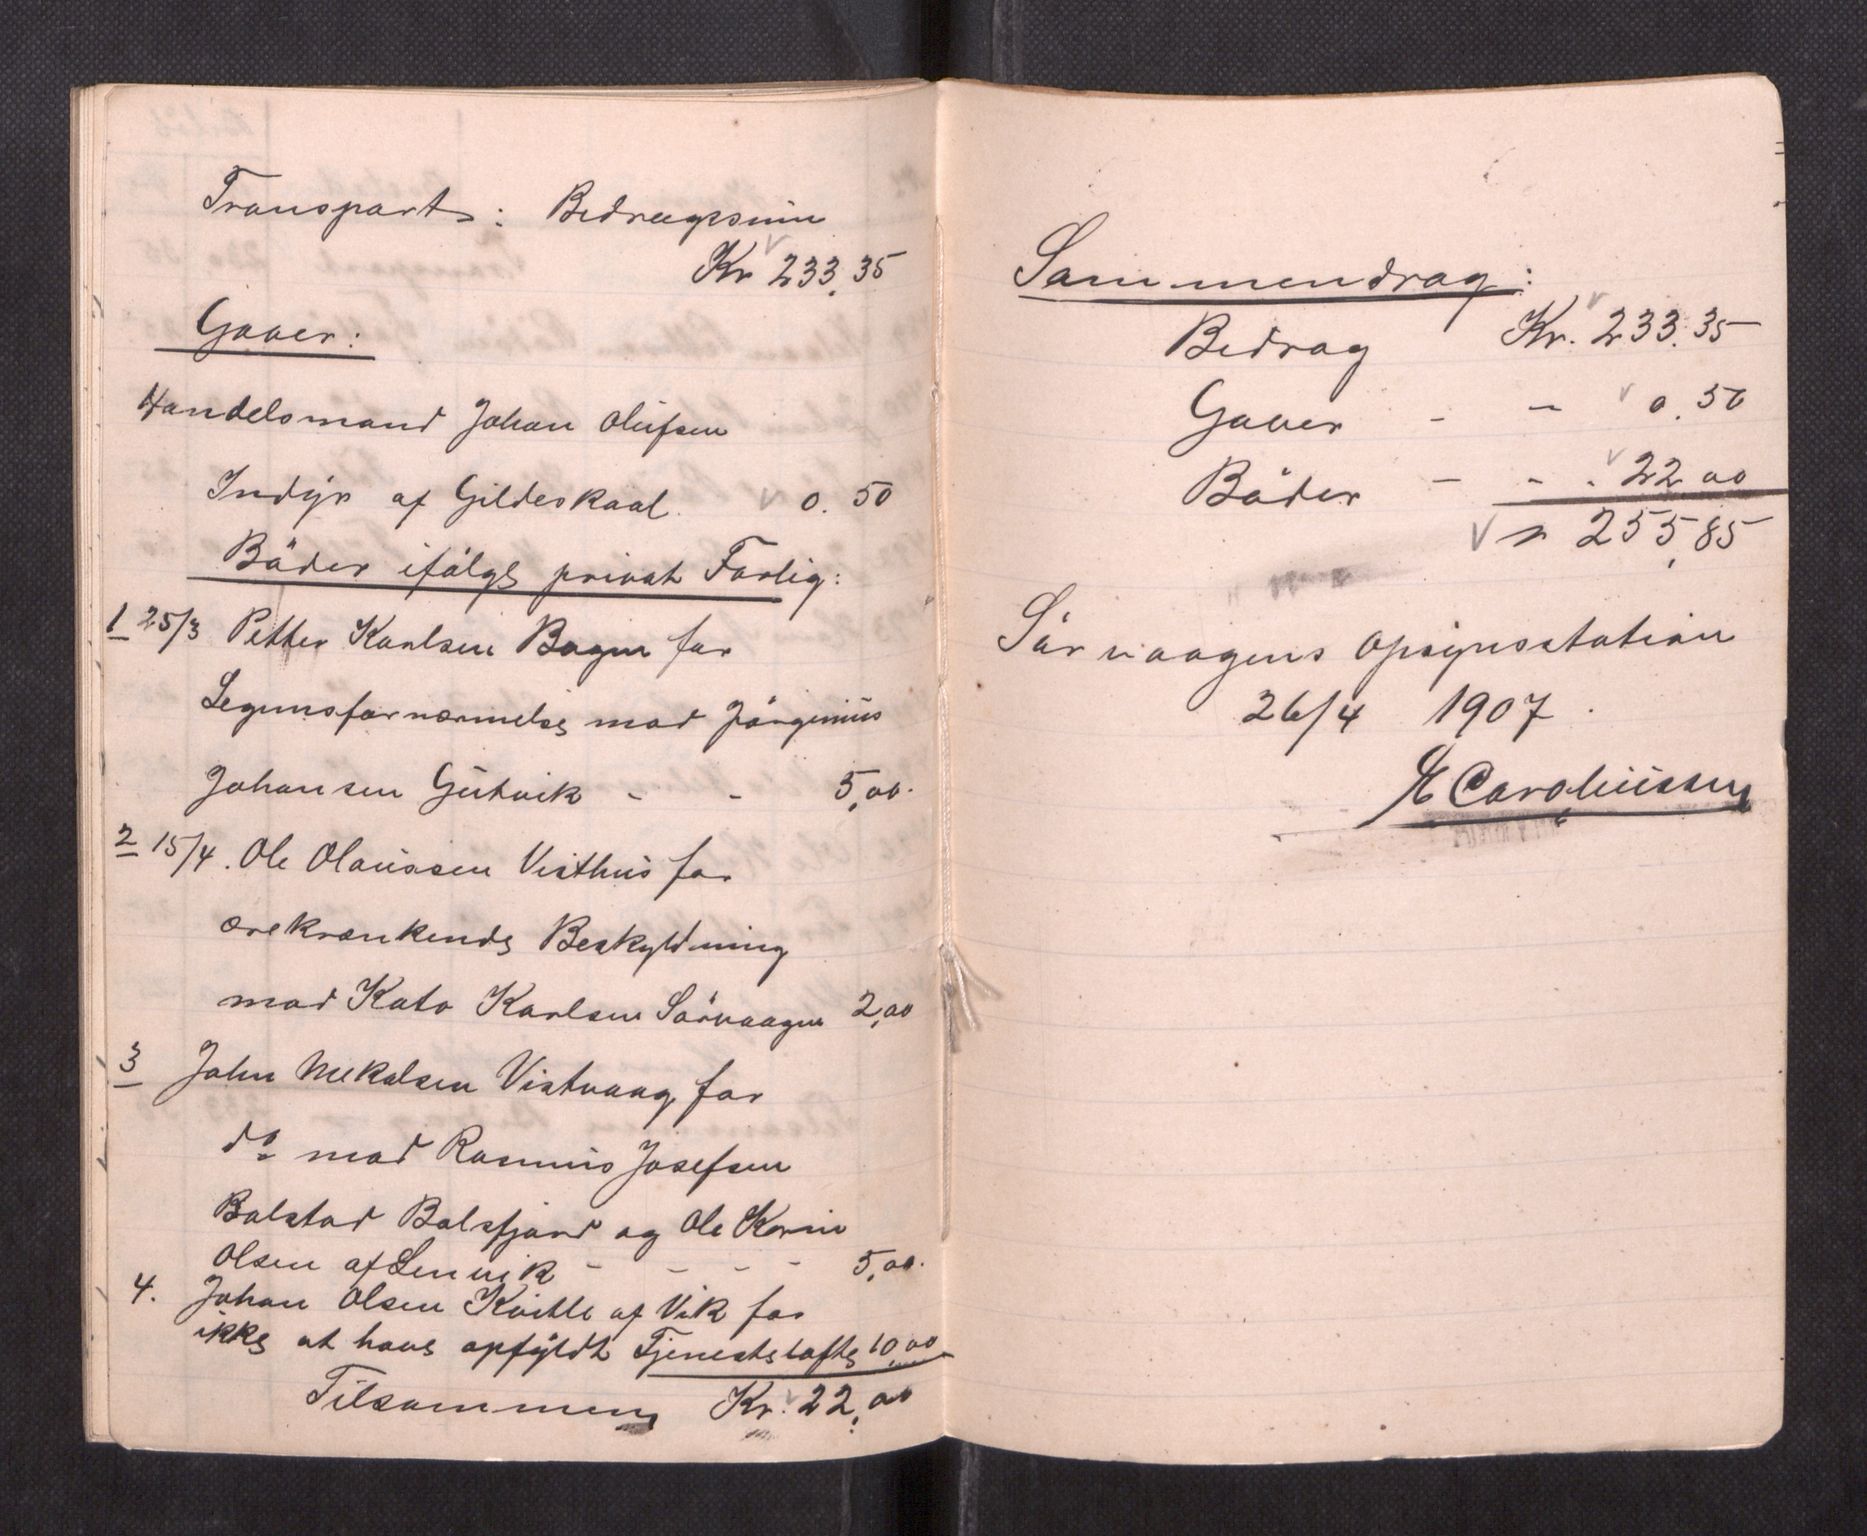 Transport: Bidragssum
Kr 233,35
Gaver:
Handelsmand Johan Olufsen
Indyr af Gildeskaal. 0.50
Böder ifölge privat Forlig:
1 25/3 Petter Karlsen Bogen for
Legemsfornærmelse mod Jörginius
Johansen Gutvik - - 5,00.
2 15/4. Ole Olaussen Visthus for
ærekrænkende Beskyldning
mod Kato Karlsen Sörvaagen 2,00
3 John Mikalsen Vistvaag for
do mod Rasmus Josefsen
Balstad Balsfjord og Ole Korin
Olsen af Lenvik - - - - 5,00.
4. Johan Olsen Kvitle af Vik for
ikke at have opfyldt Tjenestelöfte 10,00
Tilsammen Kr. 22,00
Sammendrag:
Bidrag Kr. 233.35
Gaver - - 0.50
Böder - - - 22,00
" 255,85
Sörvaagens Opsynsstation
26/4 1907.
H Caroliussen